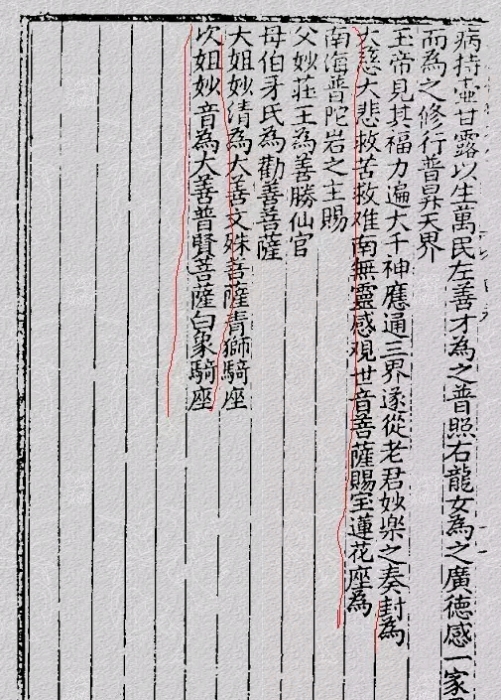 病持壺甘露以生萬民左善才為之普照右龍女為之廣德感一家
而為之修行普昇天界
玉帝見其福力遍大千神應通三界遂從老君妙樂之奏封為
大慈大悲救苦救难南無靈感觀世音菩薩賜宝蓮花座為
南海普陀岩之主賜
父妙荘王為善勝仙官
母伯牙氏為勸善菩薩
大姐妙清為大善文殊菩薩青獅騎座
次姐妙音為大善普賢菩薩白象騎座